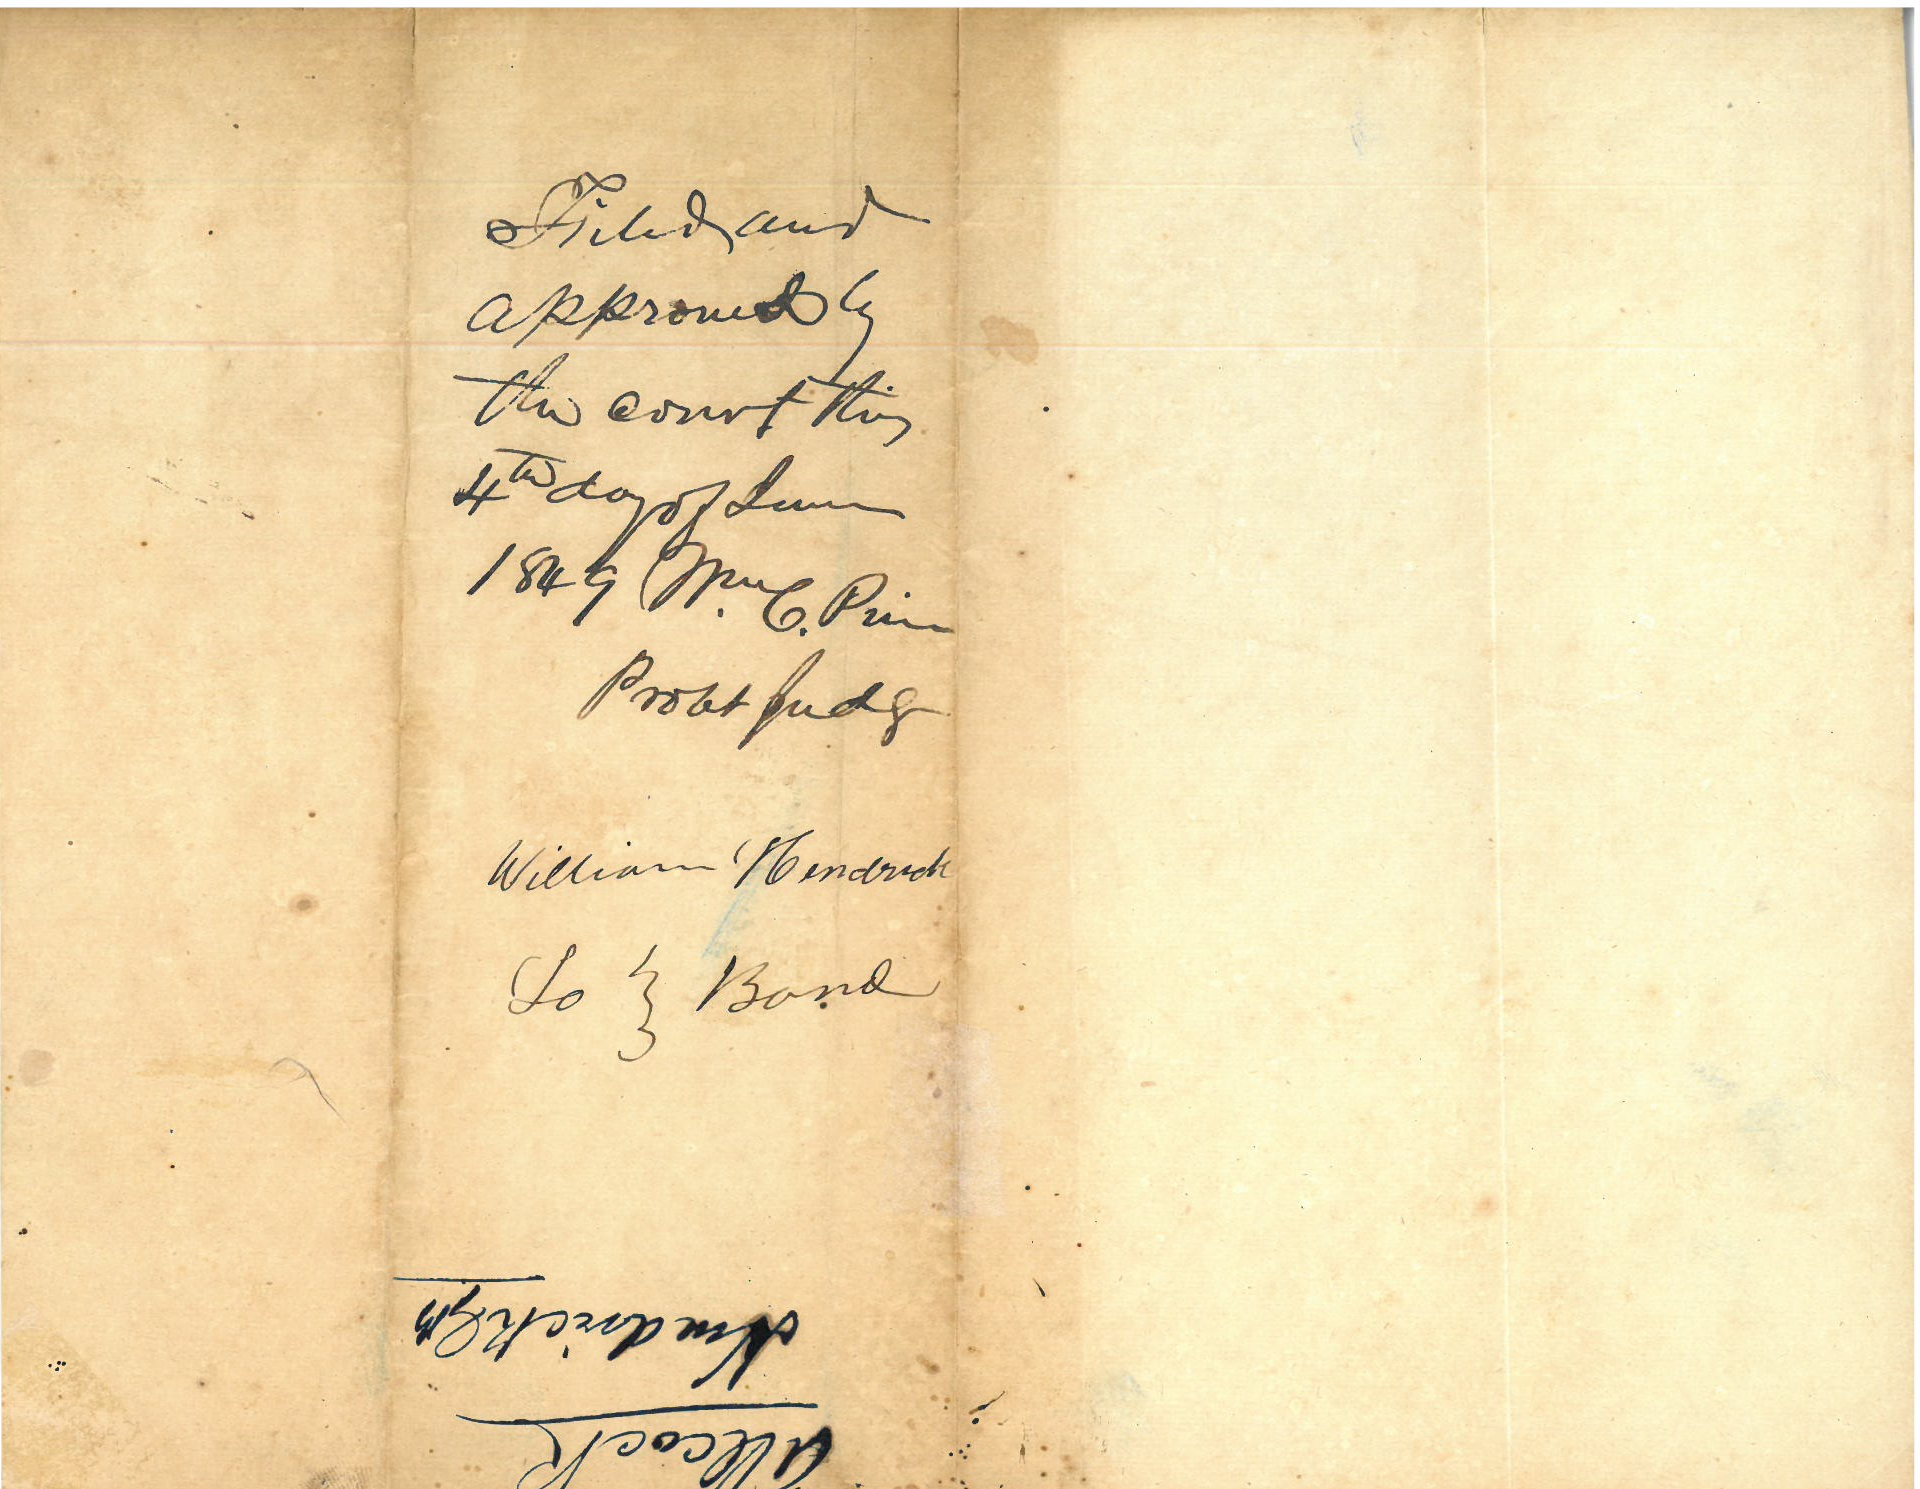 Filed and
approved by
the court this
4th day of June
1849 Wm. C. Price
Probt Judge
William Hendrick
To } Bond
Hendrick
Allcock